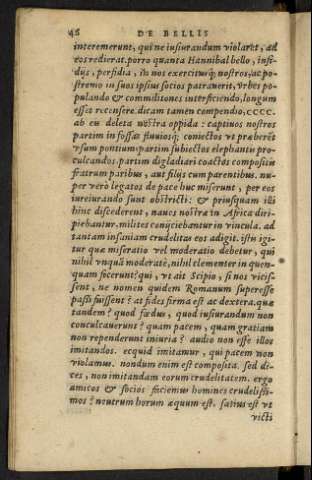 46 DE BELLIS
interemerunt, qui ne iusiurandum violarēt, ad
eos redierat. porro quanta Hannibal bello, insi-
dijs, perfidia, in nos exercitusq́; nostros, ac po-
stremo in suos ipsius socios patrauerit, vrbes po-
pulando & commilitones interficiendo, longum
esset recensere. dicam tamen compendio, CCCC.
ab eu deleta nostra oppida: captiuos nostros
partim in fossas fluuiosq́; coniectos vt præberēt
vsum pontium: partim subiectos elephantis pro-
culcandos. partim digladiari coactos compositis
fratrum paribus, aut filijs cum parentibus. nu-
per vero legatos de pace huc miserunt, per eos
iureiurando sunt obstricti: & priusquam illi
hinc discederent, naues nostræ in Africa diri-
piebantur. milites conijciebantur in vincula. ad
tantam insaniam crudelitas eos adigit. istis igi-
tur quæ miseratio vel moderatio debetur, qui
nihil vnquā moderatè, nihil clementer in quen-
quam fecerunt? qui, vt ait Scipio, si nos vicis-
sent, ne nomen quidem Romanum superesse
passi fuissent? at fides firma est ac dextera. quæ
tandem? quod fœdus, quod iusiurandum non
conculcauerunt? quam pacem, quam gratiam
non rependerunt iniuria? audio non esse illos
imitandos. ecquid imitamur, qui pacem non
violamus. nondum enim est composita. sed di-
ces, non imitandam eorum crudelitatem. ergo
amicos & socios faciemus homines crudelissi-
mos? neutrum horum æquum est. satius est vt
victi